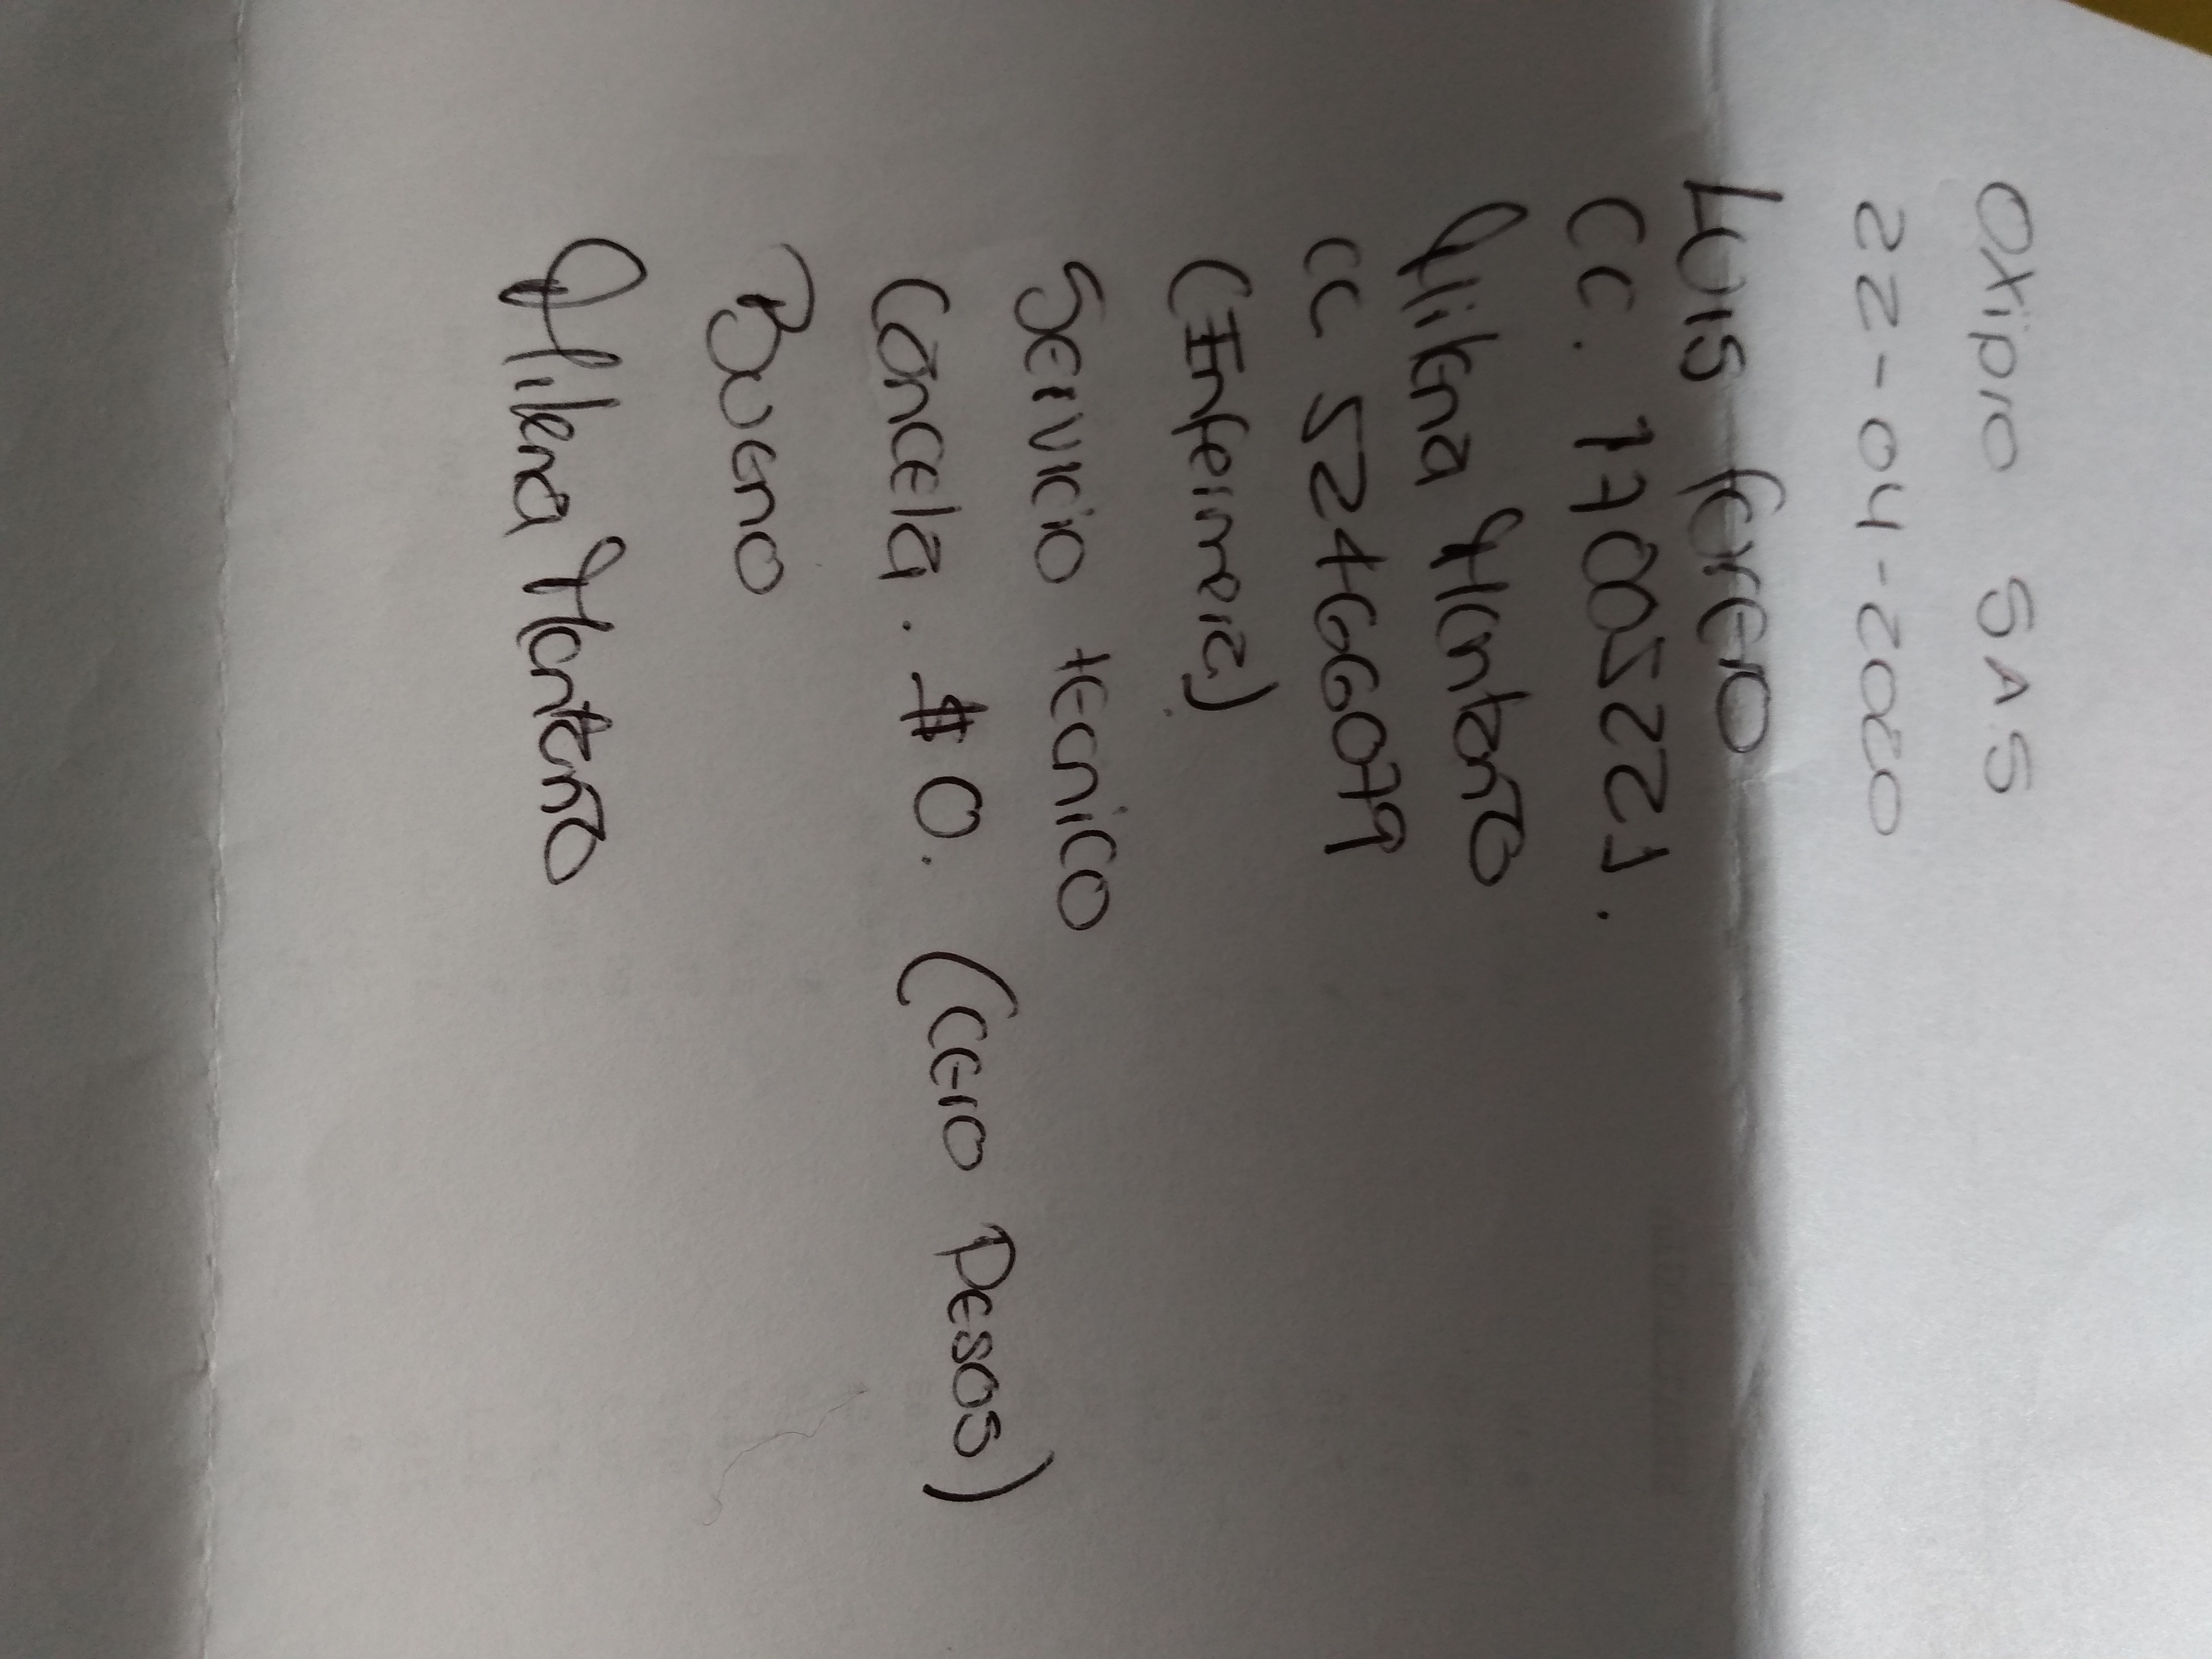 Oxipro SAS
22-04-2020
Luis forero
CC. 17005221.
Milena Montaño
CC 52466079
(Enfermera)
Servicio tecnico
Cancela. $0. (Cero pesos)
Bueno
Milena Montaño